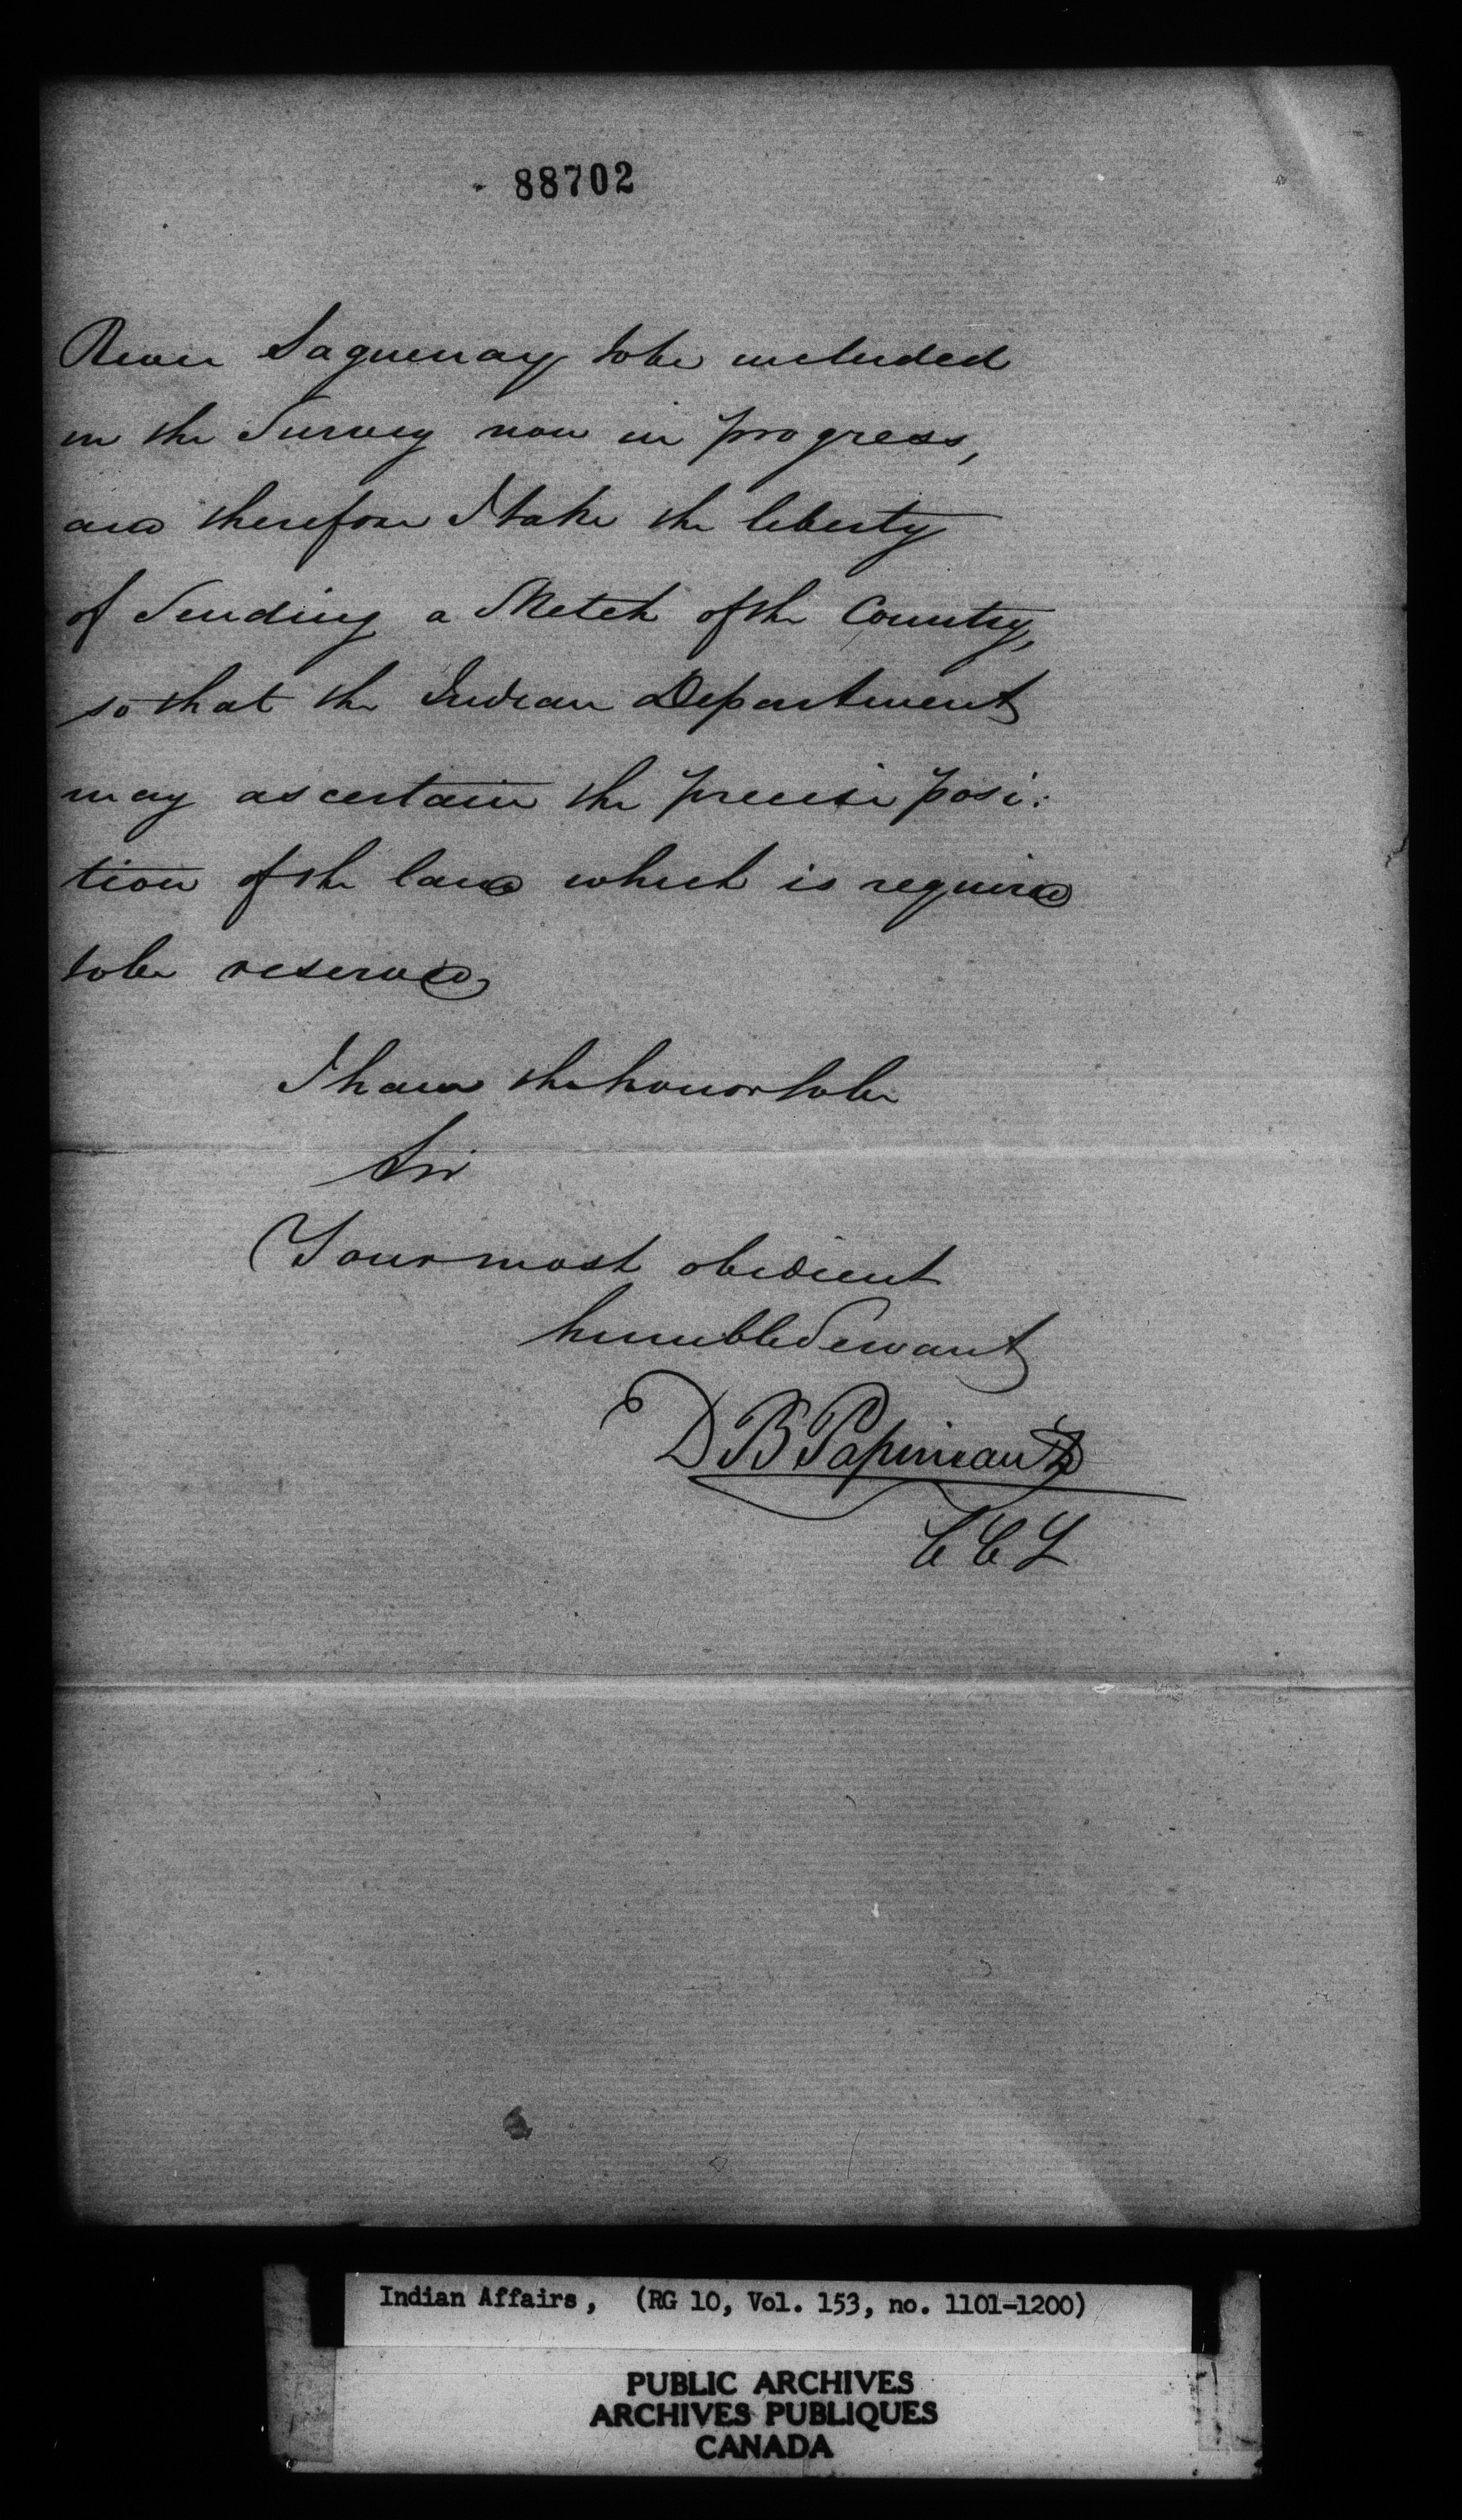 88702
River Saguenay to be included
in the Survey now in progress,
and therefore I take the liberty
of Sending a Sketch of the Country,
so that the Indian Department
may ascertain the precise posi:
tion of the land which is required
to be reserved,
I have the honor to be
Sir
Your most obedient
humble Servant
D B Papineau
C C L
Indian Affairs, (RG 10, Vol. 153, no. 1101-1200)
PUBLIC ARCHIVES
ARCHIVES PUBLIQUES
CANADA